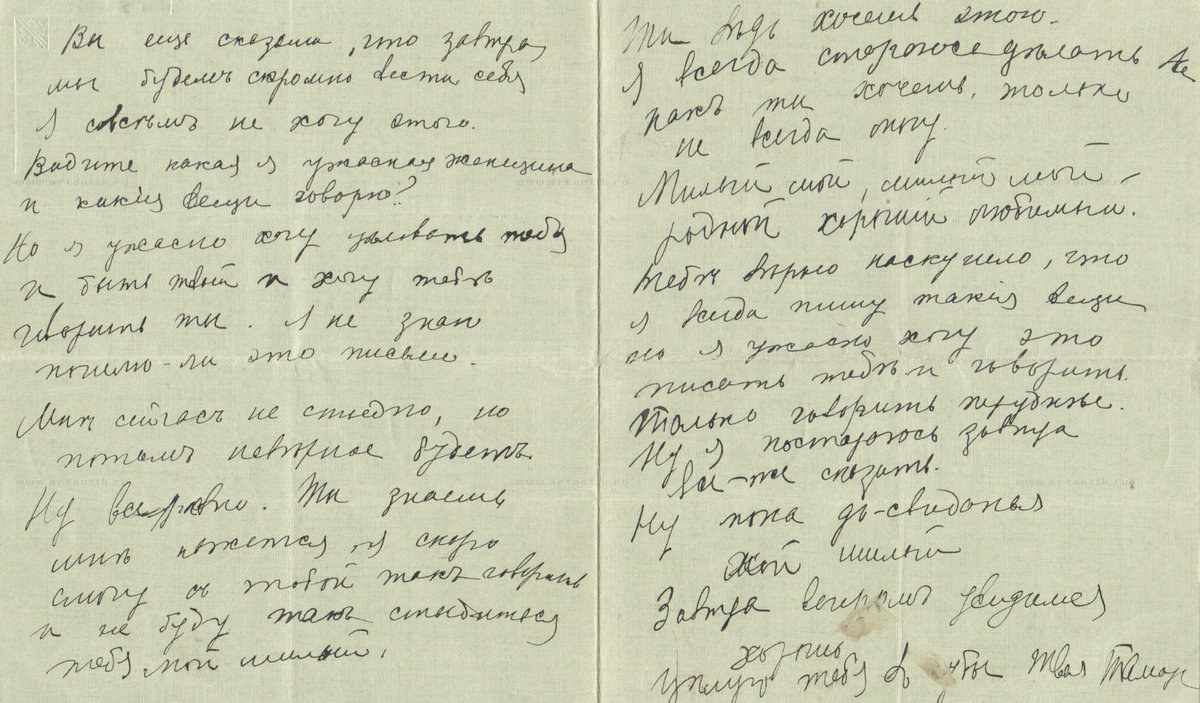 Вы еще сказали, что завтра
мы будемъ скромно вести себя
Я совсѣмъ не хочу этого.
Видите какая я ужасная женщина
и какiя вещи говорю?
Но я ужасно хочу цѣловать тебя
и быть твоей и хочу тебѣ
говорить ты. Я не знаю
пошлю-ли это письмо.
Мнѣ сейчасъ не стыдно, но
потомъ навѣрное будетъ.
Ну все равно. Ты знаешь
мнѣ кажется, я скоро
смогу съ тобой такъ говорить
и не буду такъ стыдиться
тебя мой милый.
Ты вѣдь хочешь этого.
Я всегда стараюсь дѣлать
какъ ты хочешь, только
не всегда могу.
Милый мой, милый мой –
родной хорошiй любимый.
Тебѣ вѣрно наскучило, что
я всегда пишу такiя вещи
но я ужасно хочу это
писать тебѣ и говорить.
Только говорить труднѣе.
Ну я постараюсь завтра
все-же сказать.
Ну пока до-свиданья
мой милый
Завтра вечеромъ увидимся
хорошо
Цѣлую тебя въ губы Твоя Тамара